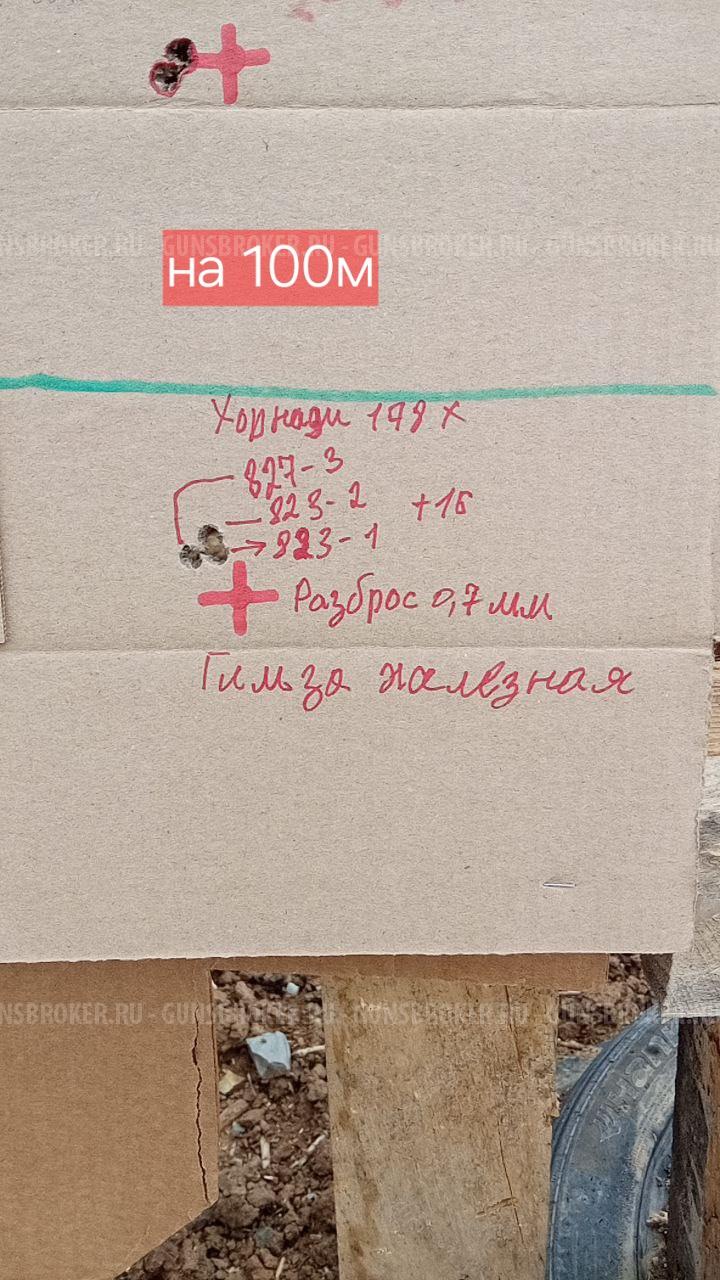 GUNSBROKER.RU - GUNSBROKER.RU - GUNSBROKER.RU - GUNSBROKER.RU
на 100м
Хорнади 178 X
827-3
823-2 +16
823-1
Разброс 0,7 мм
Гильза железная
GUNSBROKER.RU - GUNSBROKER.RU - GUNSBROKER.RU - GUNSBROKER.RU